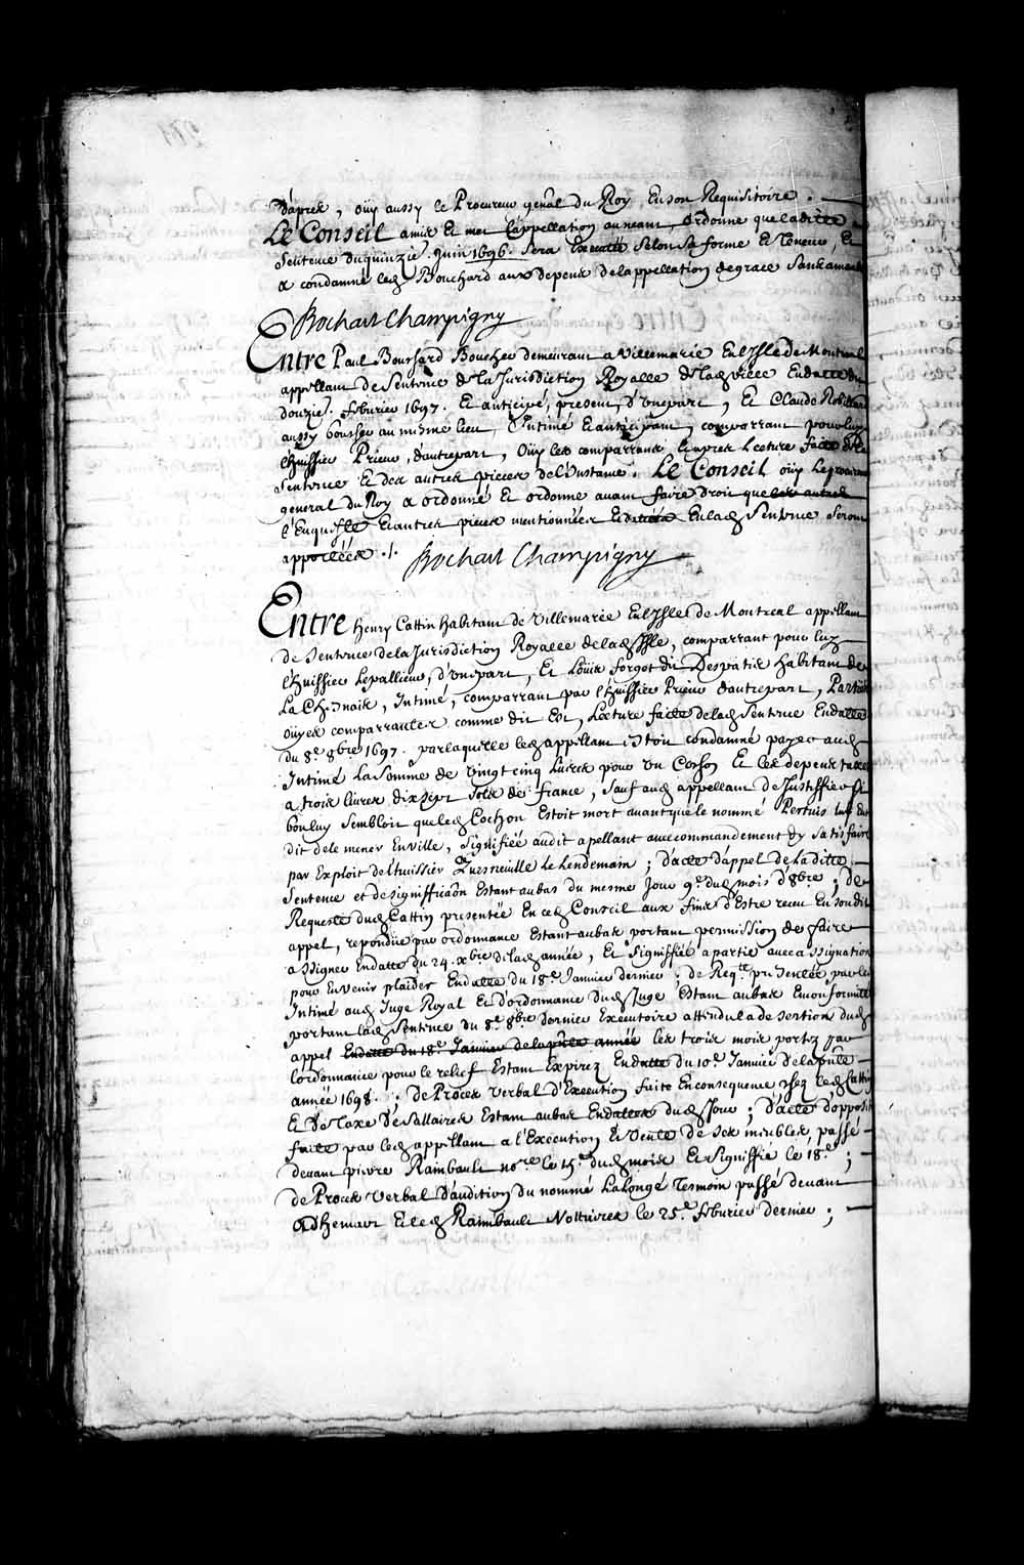 D'apres, oüy aussy le Procureur genãl du Roy, En son Requisitoire.
Le Conseil a mis Et met l'appellation au neant, ordonne que ladicte
Sentence du quinzie. Juin 1696. Sera Executée Selon Sa forme Et Teneur, Et
a condamné led Bouchard aux depens de l'appellation de grace Sans amande
Bochart Champigny
Entre Paul Bouchard Boucher demeurant a Villemarie En L'Isle de Montreal
appellant de Sentence de La Jurisdiction Royalle de lad Ville En datte du
douzie. feburier 1697. Et anticipé, present, d'une part, Et Claude Robillard
aussy boucher au mesme lieu, Intimé Et anticipant, comparrant pour luy
l'huissier Prieur, d'autre part, Oüy les comparrans Et apres Lecture faite de La
Sentence Et des autres pieces de l'Instance. Le Conseil oüy Le procureur
general du Roy a ordonné Et ordonne avant faire droit que les autres
l'Enqueste Et autres pieces mentionnées Et dattées En lad Sentence Seront
apportéés ./. Bochart Champigny
Entre henry Cattin habitant de Villemarie En L'Isle de Montreal appellant
de Sentence de la Jurisdiction Royalle de lad Isle, comparrant pour luy
l'huissier Lepallieur, d'une part, Et Loüis forgot dit Despatis habitant de
La Chesnaie, Intimé, comparrant par l'huissier Prieur d'autre part, Parties
oüyes comparrantes comme dit Est, Lecture faitte de lad Sentence En datte
du 8e. 8bre 1697. par laquelle led appellant Estoit condamné payer aud
Intimé La Somme de vingt cinq Livres pour un Cochon Et les depens taxez
a trois livres dix sept Sols de france, Sauf aud appellant de Justiffier Si
bon luy Sembloit que led Cochon Estoit mort avant que le nommé Pertuis luy Eut
dit de le mener En ville, Signifiée audit apellant avec commandement dy Satisfaire
par Exploit de l'huissier Quesneville Le Lendemain; d'acte d'appel de La ditte
Sentence et de Signiffication Estant au bas du mesme Jour 9e. dud mois d'8bre; de
Requeste dud Cattin presentée En ced Conseil aux fins d'Estre receu En son dit
appel, repondüe par ordonnance Estant au bas portant permission de faire
assigner En datte du 24. xbre de lad année, Et Signiffiée a partie avec assignation
pour En venir plaider En datte du 18e. Janvier dernier; de Reqte. presentée par led
Intimé aud Juge Royal Et d'ordonnance dud Juge Estant au bas Emonformité
portant lad Sentence du 8e. 8bre dernier Executoire attendu la desertion dud
appel En datte du 18e. Janvier de la pñte année les trois mois portez par
l'ordonnance pour le relief Estant Expirez En datte du 10e. Janvier de la pñte
année 1698.; de Procez verbal d'Execution faite En consequence chez led Cattin
Et De Taxe De Sallaires Estant au bas En dattes dud Jour; d'acte d'opposition
faite par led appellant a l'Execution Et Vente de Ses meubles, passé
devant pierre Raimbault nore le 15e. dud mois Et Signiffié le 18e.;
de Procez verbal d'audition du nommé Lalongé Tesmoin passé devant
Adhemar Et led Raimbault Nottaires le 25e. feburier dernier;